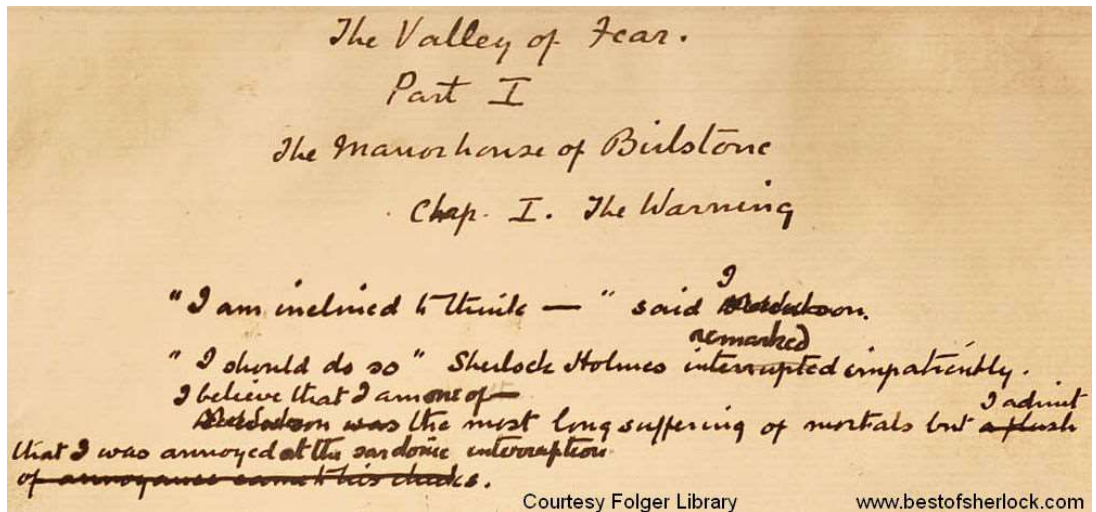 The Valley of Fear.
Part I
The Manor house of Birlstone
Chap. I. The Warning
I
"I am inclined to think — " said
remarked
"I should do so" Sherlock Holmes interrupted impatiently.
I believe that I am one of —
was the most long suffering of mortals but a flush I admit
that I was annoyed at the sardonic interruption
of annoyance came to his cheeks.
Courtesy Folger Library
www.bestofsherlock.com